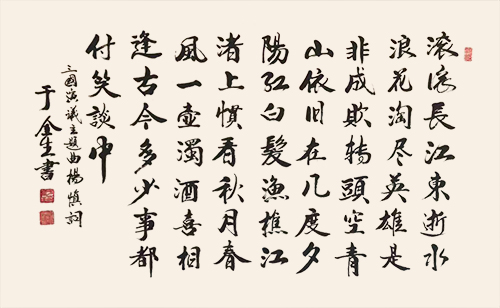 滚滚長江東逝水
浪花淘尽英雄是
非成敗轉頭空青
山依旧在几度夕
陽红白髮漁樵江
渚上慣看秋月春
風一壶濁酒喜相
逢古今多少事都
付笑談中
三國演義主題曲楊慎詞
于金生書